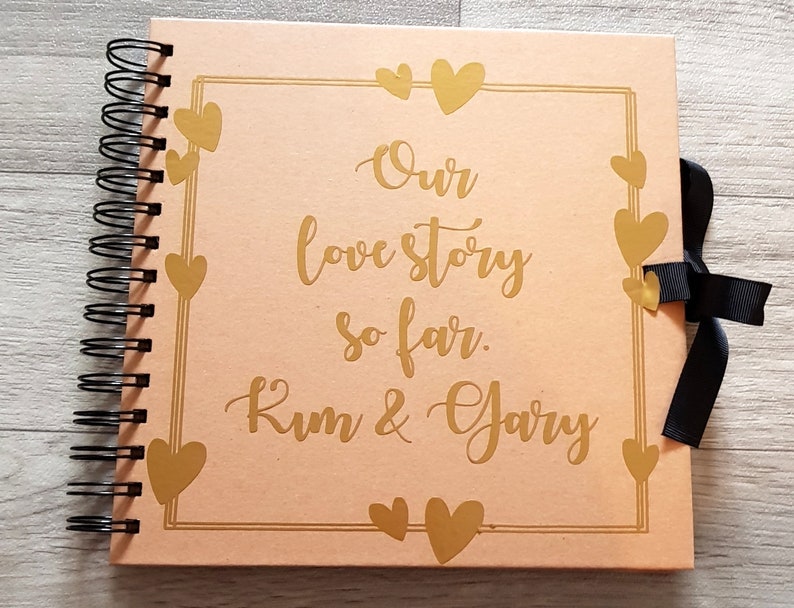 Our
love story
so far.
Kim & Gary